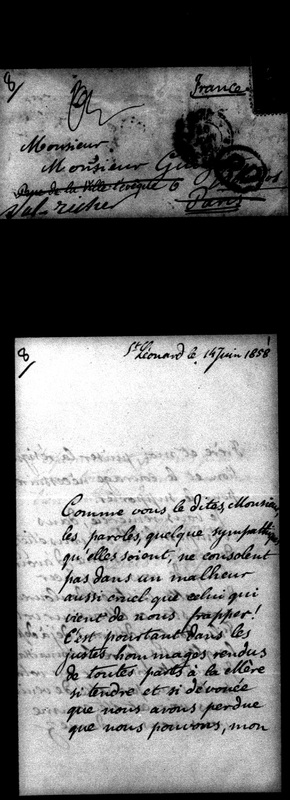 8/
France
Monsieur
Monsieur
Rue de la Ville l'évêque 6
Val richer
Paris
8/
St Léonard le 14 Juin 1858
Comme vous le dites, Monsieur
les paroles, quelque sympathiques
qu'elles soient, ne consolent
pas dans un malheur
aussi cruel que celui qui
vient de nous frapper!
C'est pourtant dans les
justes hommages rendus
de toutes parts à la Mère
si tendre et si dévouée
que nous avons perdue
que nous pouvons, mon